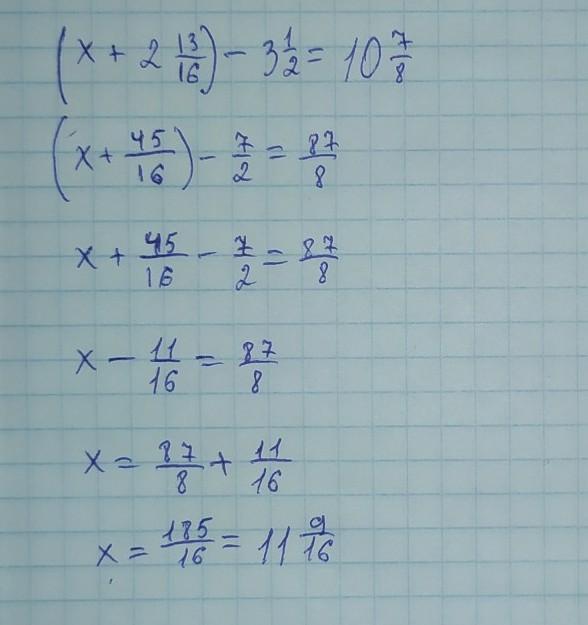 (x + 2 13/16) - 3 1/2 = 10 7/8
(x + 45/16) - 7/2 = 87/8
x + 45/16 - 7/2 = 87/8
x - 11/16 = 87/8
x = 87/8 + 11/16
x = 185/16 = 11 9/16